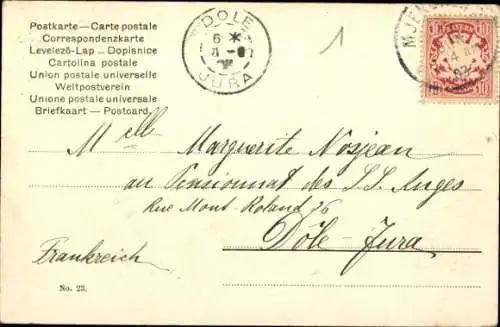 Postkarte — Carte postale
Correspondenzkarte
Levelező-Lap — Dopisnice
Cartolina postale
Union postale universelle
Weltpostverein
Unione postale universale
Briefkaart — Postcard.
DOLE
6 *
JURA
1
BAYERN
10 10
Melle Marguerite Nosjean
au Pensionnat des S.S. Anges
Rue Mont-Roland
Dôle - Jura
Frankreich
No. 23.